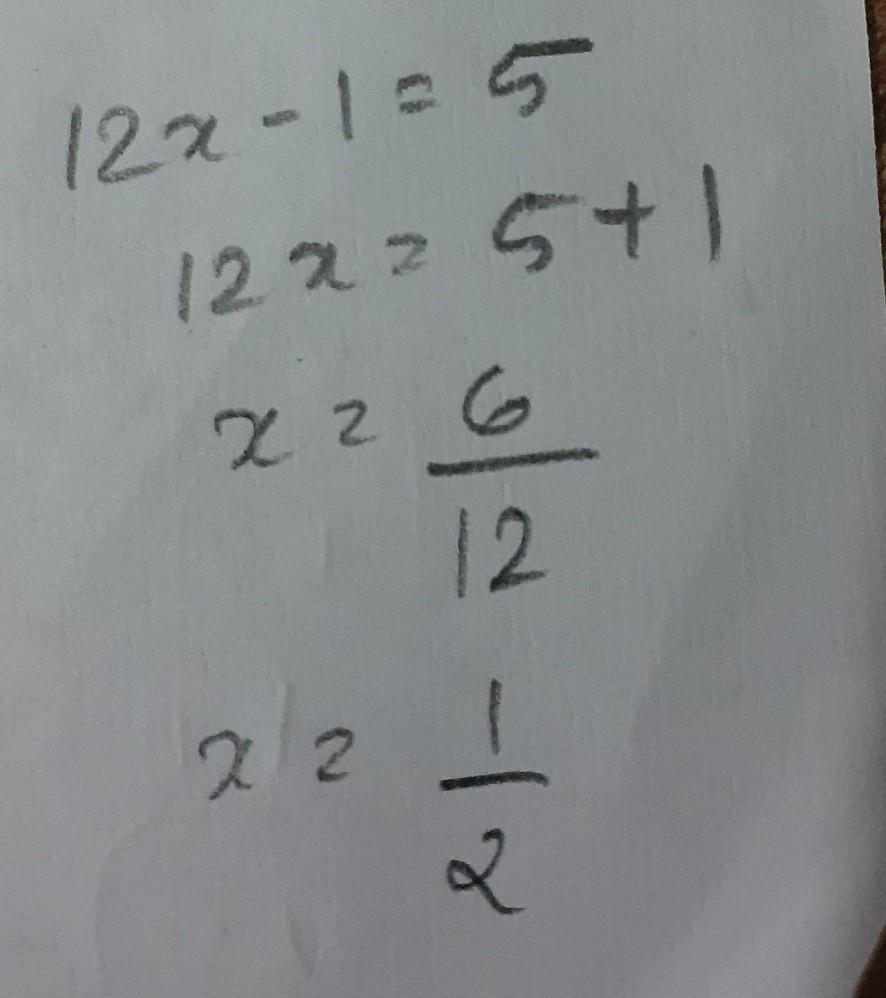 12x - 1 = 5
12x = 5 + 1
x = 6/12
x = 1/2